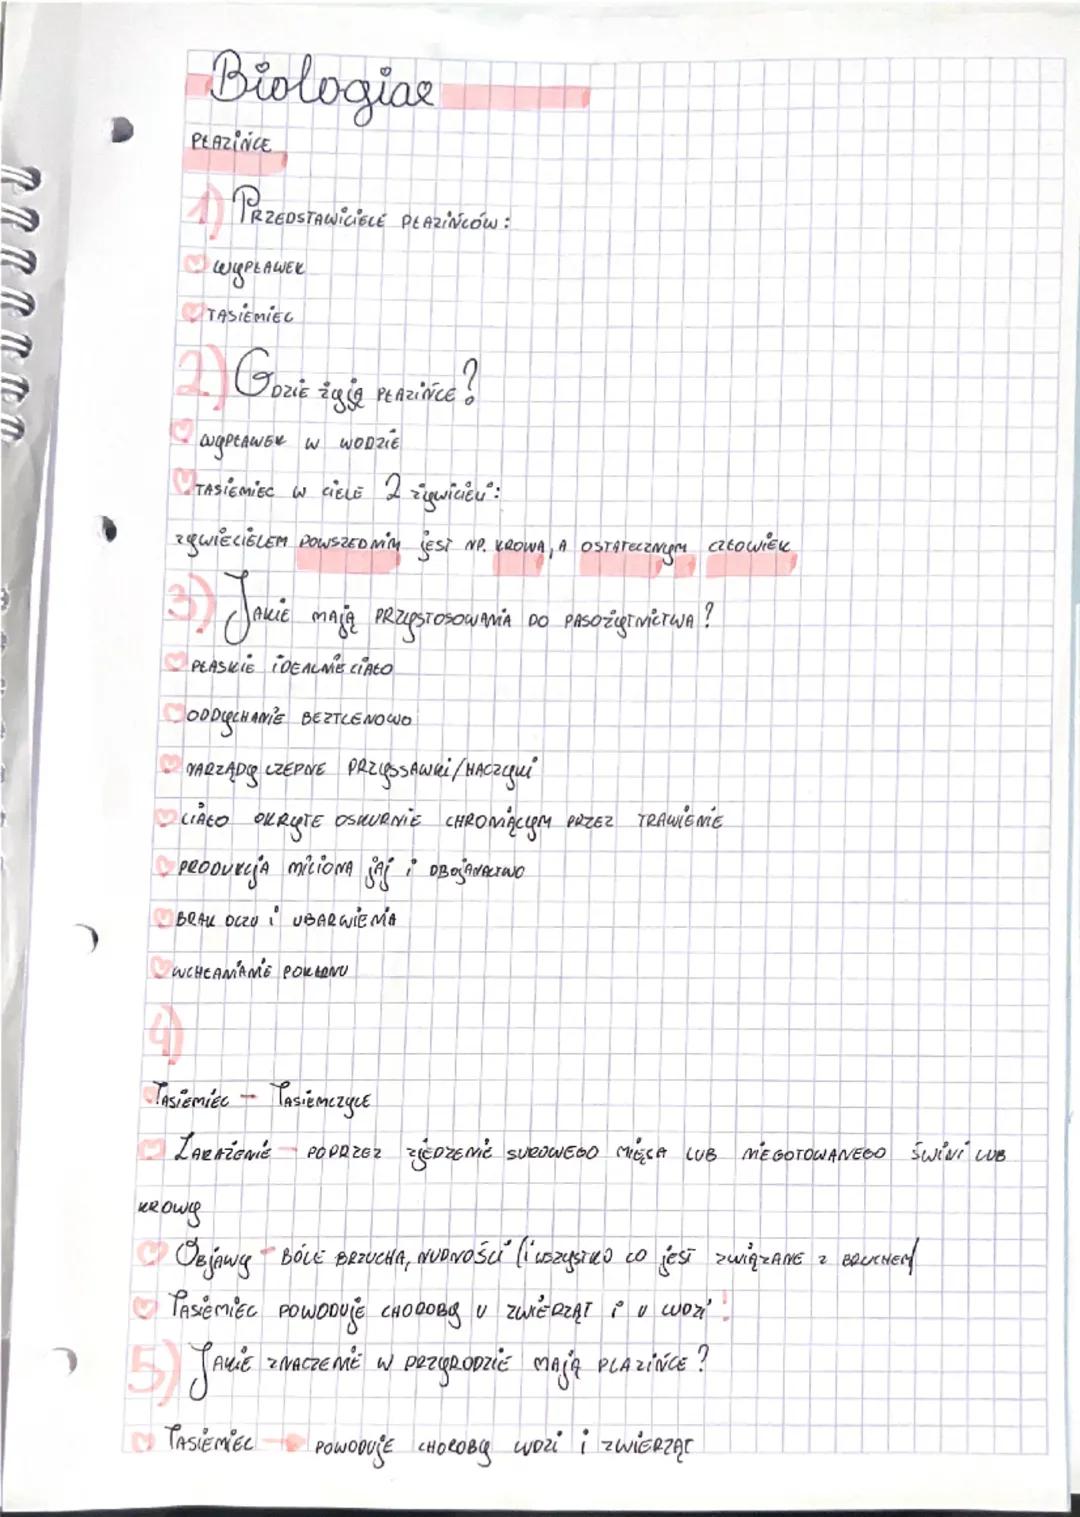 Biologiae
PŁAZIŃCE
1) PRZEDSTAWICIELE PŁAZIŃCÓW:
WYPŁAWEK
TASIEMIEC
2) GDZIE ŻYJĄ PŁAZIŃCE?
WYPŁAWEK W WODZIE
TASIEMIEC W CIELE 2 ŻYWICIELI:
ŻYWIECIELEM POWSZEDNIM JEST NP. KROWA, A OSTATECZNYM CZŁOWIEK
3) JAKIE MAJĄ PRZYSTOSOWANIA DO PASOŻYTNICTWA?
PŁASKIE IDEALNIE CIAŁO
ODDYCHANIE BEZTLENOWO
NARZĄDY CZEPNE PRZYSSAWKI/HACZYKI
CIAŁO OKRYTE OSKURNIE CHRONIĄCYM PRZEZ TRAWIENIE
PRODUKCJA MILIONA JAJ I OBOJANACTWO
BRAK OCZU I UBARWIENIA
WCHŁANIANIE POKŁONU
4)
TASIEMIEC - TASIEMCZYCE
ZARAŻENIE - POPRZEZ ZJEDZENIE SUROWEGO MIĘSA LUB NIEGOTOWANEGO ŚWINI LUB
KROWY
OBJAWY - BÓLE BRZUCHA, NUDNOŚCI (I WSZYSTKO CO JEST ZWIĄZANE Z BRUCHEM)
TASIEMIEC POWODUJE CHOROBY U ZWIERZĄT I U LUDZI!
5) JAKIE ZNACZENIE W PRZYRODZIE MAJĄ PŁAZIŃCE?
TASIEMIEC → POWODUJE CHOROBY LUDZI I ZWIERZĄT